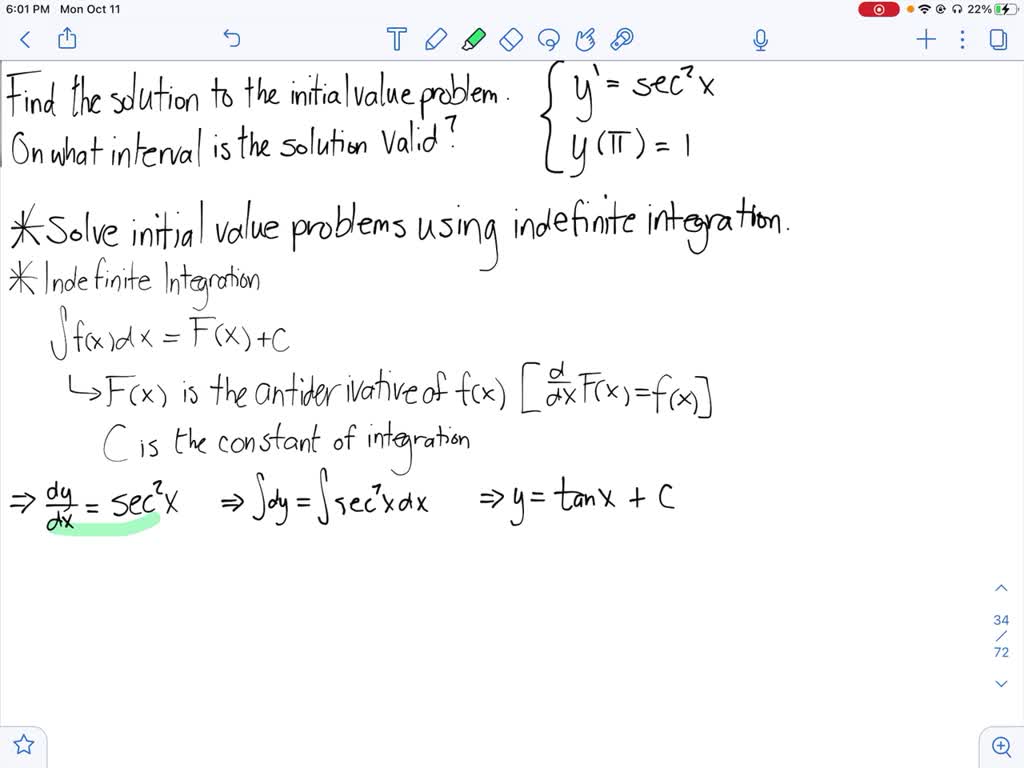 6:01 PM Mon Oct 11 22%
T
Find the solution to the initial value problem.
On what interval is the solution valid?
{ y' = sec²x
y(π) = 1
* Solve initial value problems using indefinite integration.
* Indefinite Integration
∫f(x)dx = F(x)+C
↳ F(x) is the antiderivative of f(x) [d/dx F(x)=f(x)]
C is the constant of integration
⇒ dy/dx = sec²x ⇒ ∫dy = ∫sec²x dx ⇒ y = tanx + C
34
/
72